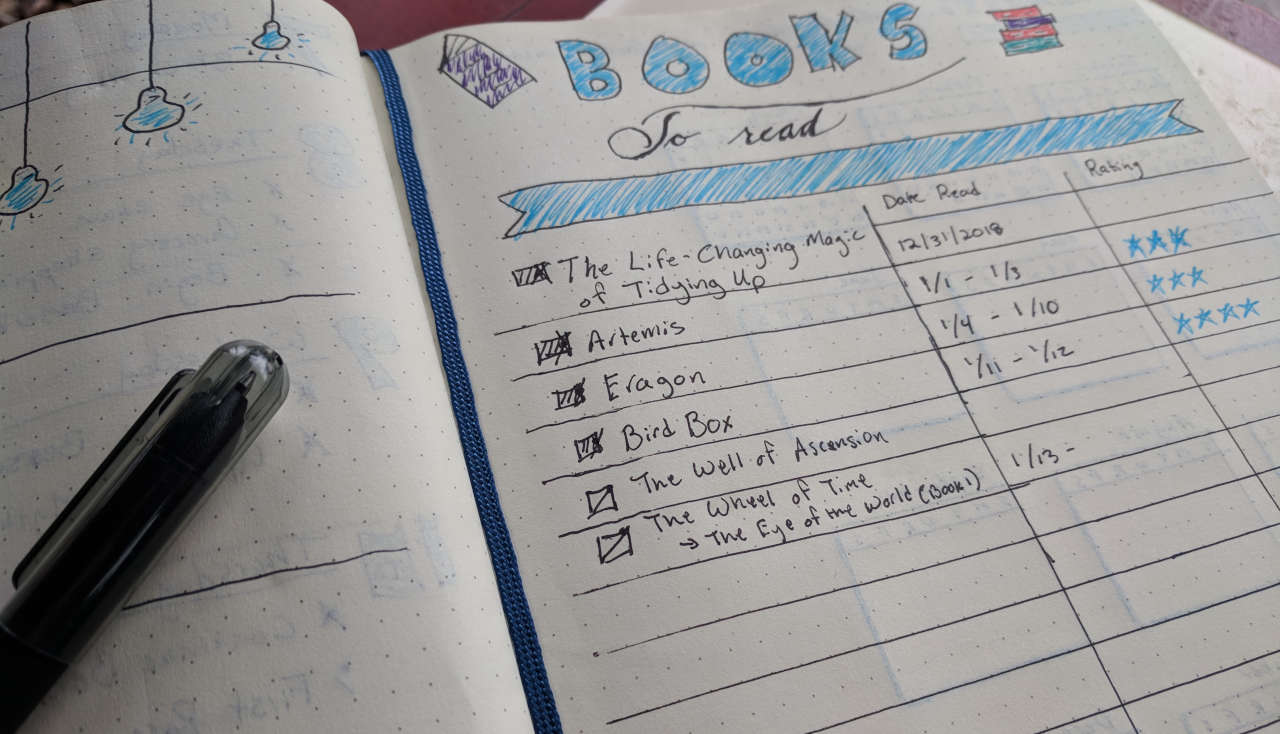 BOOKS
To read
Date Read
Rating
The Life-Changing Magic
of Tidying Up
12/31/2018
Artemis
1/1 - 1/3
Eragon
1/4 - 1/10
Bird Box
1/11 - 1/12
The Well of Ascension
The Wheel of Time
→ The Eye of the World (Book 1)
1/13 -